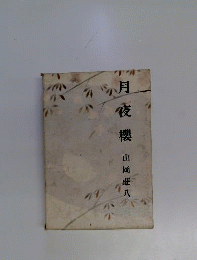 月夜櫻
山岡荘八